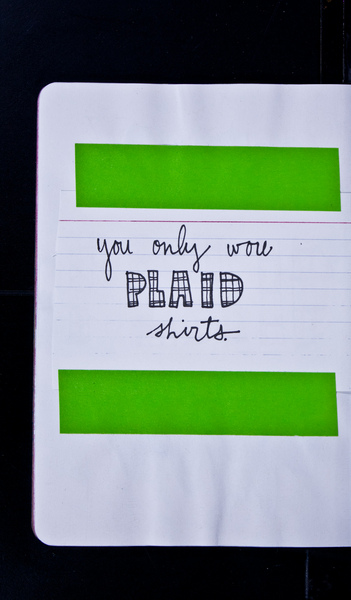 you only wore
PLAID
shirts.